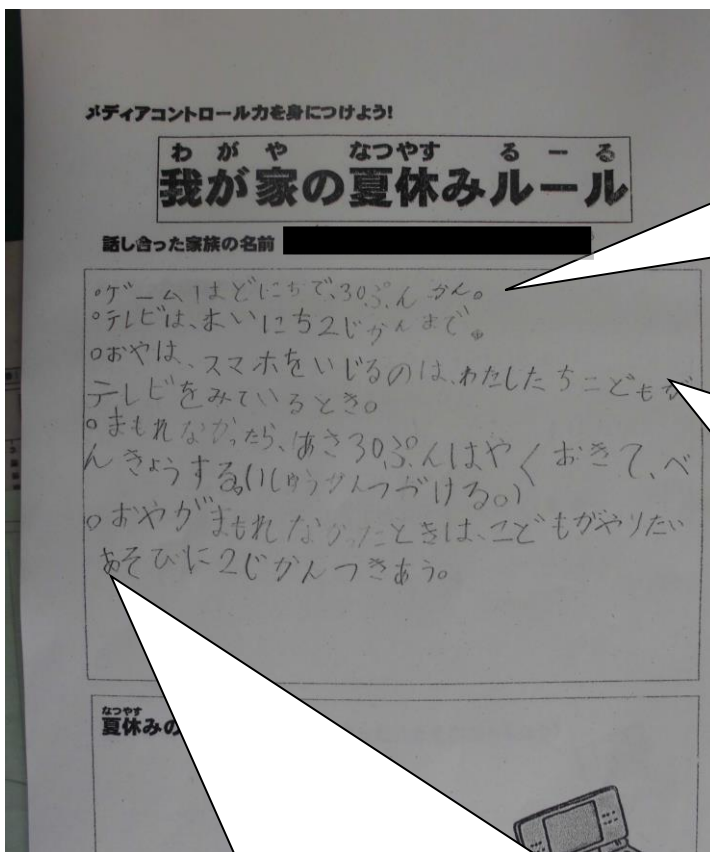 メディアコントロール力を身につけよう!
わ が や なつやす る ー る
我が家の夏休みルール
話し合った家族の名前
○ゲームはどにちで、30ぷんかん。
○テレビは、まいにち2じかんまで。
○おやは、スマホをいじるのは、わたしたちこどもが
テレビをみているとき。
○まもれなかったら、あさ30ぷんはやくおきて、べ
んきょうする。(1しゅうかんつづける。)
○おやがまもれなかったときは、こどもがやりたい
あそびに2じかんつきあう。
なつやす
夏休みの